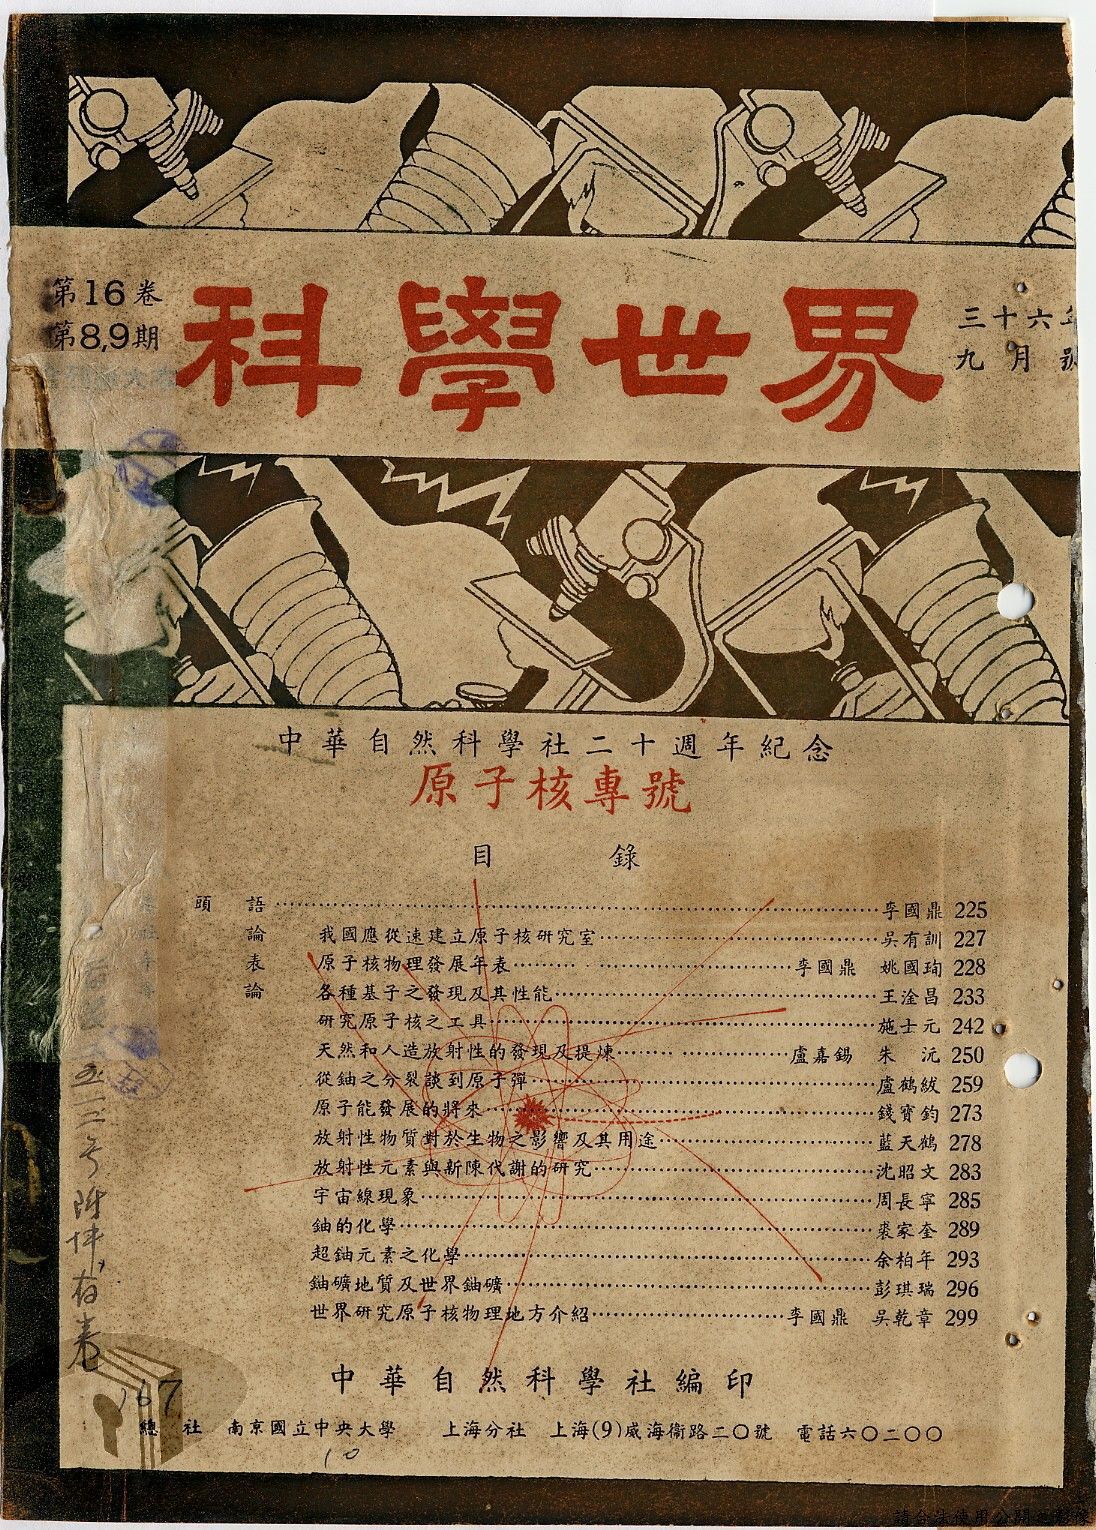 第16卷
第8,9期
科學世界
三十六年
九月號
中華自然科學社二十週年紀念
原子核專號
目錄
頭語……李國鼎 225
論 我國應從速建立原子核研究室……吳有訓 227
表 原子核物理發展年表……李國鼎 姚國珣 228
論 各種基子之發現及其性能……王淦昌 233
研究原子核之工具……施士元 242
天然和人造放射性的發現及提煉……盧嘉錫 朱沅 250
從鈾之分裂談到原子彈……盧鶴紱 259
原子能發展的將來……錢寶鈞 273
放射性物質對於生物之影響及其用途……藍天鶴 278
放射性元素與新陳代謝的研究……沈昭文 283
宇宙線現象……周長寧 285
鈾的化學……裘家奎 289
超鈾元素之化學……余柏年 293
鈾礦地質及世界鈾礦……彭琪瑞 296
世界研究原子核物理地方介紹……李國鼎 吳乾章 299
中華自然科學社編印
總社 南京國立中央大學 上海分社 上海(9)威海衞路二〇號 電話六〇二〇〇
167
10